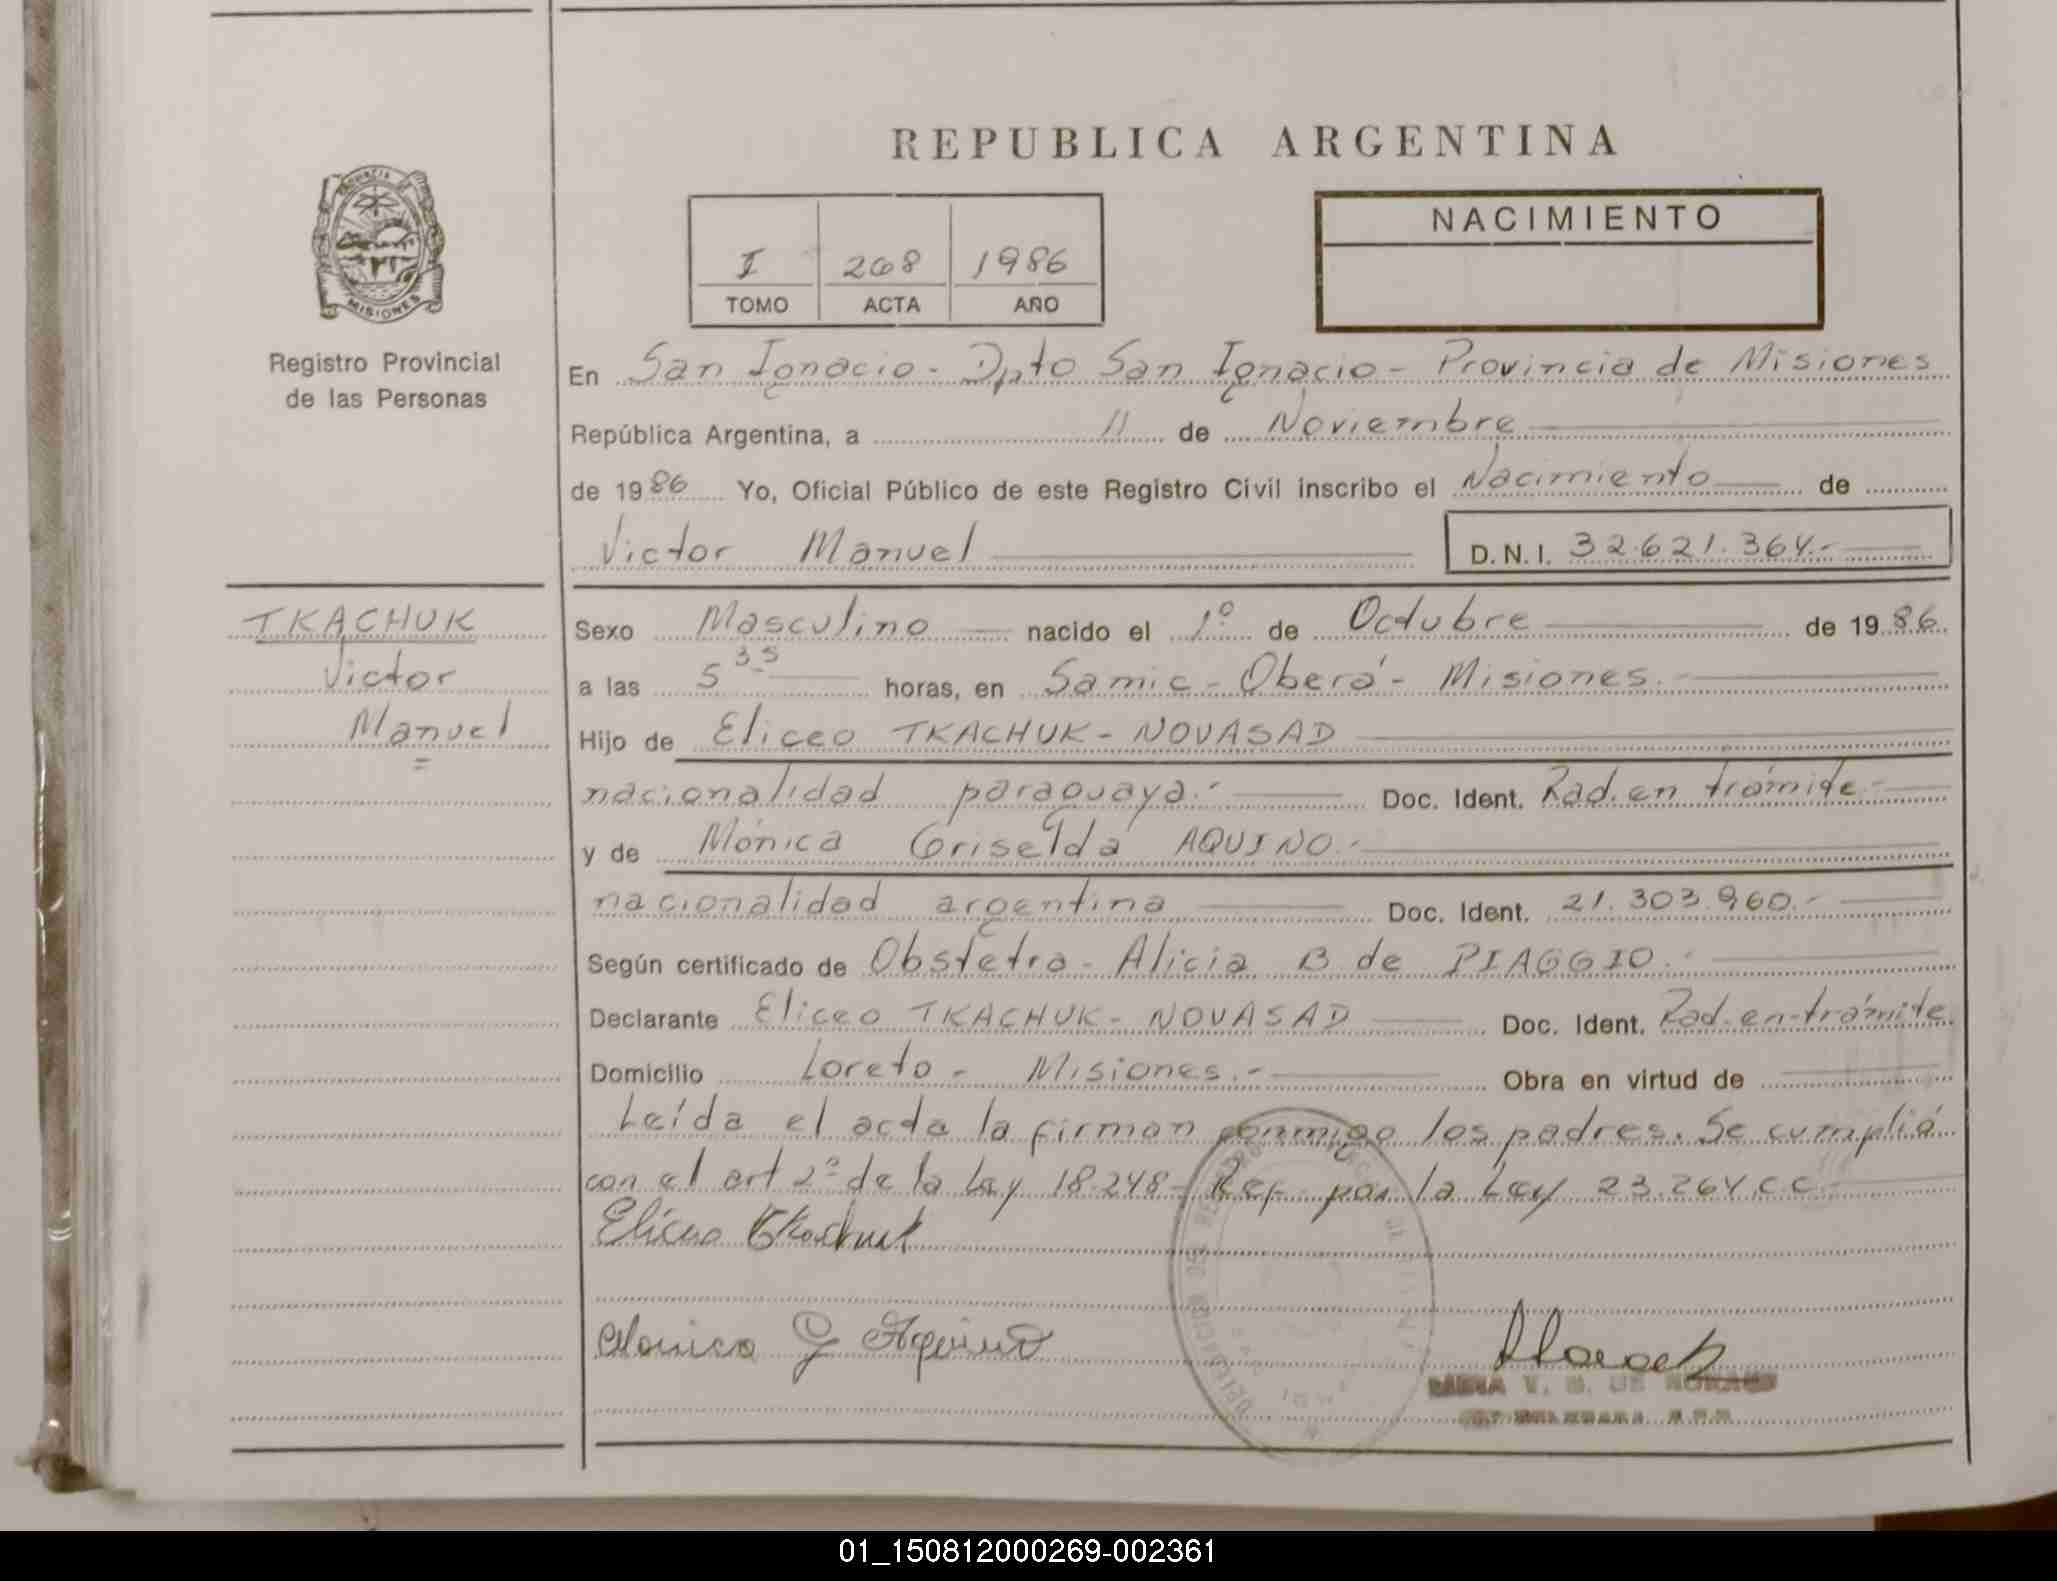 REPUBLICA ARGENTINA
PROVINCIA DE
MISIONES
Registro Provincial
de las Personas
I 268 1986
TOMO ACTA AÑO
NACIMIENTO
En San Ignacio - Dpto San Ignacio - Provincia de Misiones
República Argentina, a 11 de Noviembre
de 1986 Yo, Oficial Público de este Registro Civil inscribo el Nacimiento de
Victor Manuel D.N.I. 32.621.364.-
TKACHUK
Victor
Manuel
Sexo Masculino nacido el 1º de Octubre de 1986.
a las 5 35 horas, en Samic - Oberá - Misiones.
Hijo de Eliceo TKACHUK - NOVASAD
nacionalidad paraguaya.- Doc. Ident. Rad. en trámite.-
y de Mónica Griselda AQUINO.-
nacionalidad argentina Doc. Ident. 21.303.960.-
Según certificado de Obstetra - Alicia B de PIAGGIO.-
Declarante Eliceo TKACHUK - NOVASAD Doc. Ident. Rad. en trámite
Domicilio Loreto - Misiones.- Obra en virtud de
Leída el acta la firman conmigo los padres. Se cumplió
con el art 2º de la Ley 18.248 - Ref. por la Ley 23.264 C C
Eliceo Tkachuk
Monica G Aquino
DELEGACION DEL REGISTRO
01_150812000269-002361